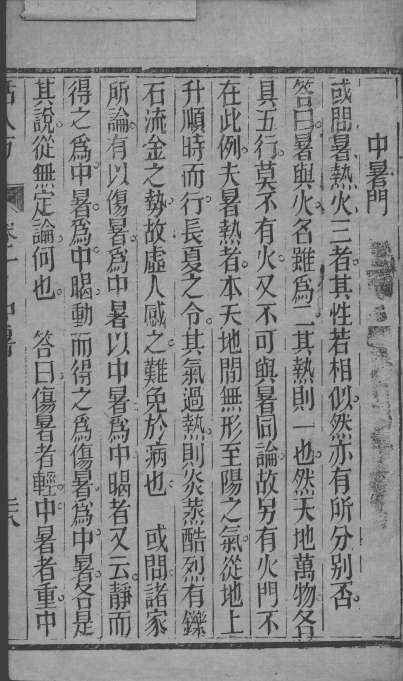 中暑門
或問暑熱火三者其性若相似然亦有所分别否
答曰暑與火名雖爲二其熱則一也然天地萬物各
具五行莫不有火又不可與暑同論故另有火門不
在此例夫暑熱者本天地間無形至陽之氣從地上
升順時而行長夏之令其氣過熱則炎蒸酷烈有鑠
石流金之勢故虛人感之難免於病也　或問諸家
所論有以傷暑爲中暑以中暑爲中暍者又云靜而
得之爲中暑爲中暍動而得之爲傷暑爲中暑各是
其說從無定論何也　答曰傷暑者輕中暑者重中
活人方
卷十 中暑 二八